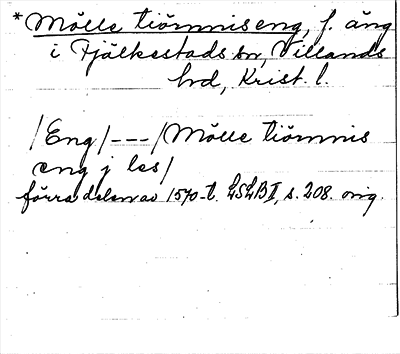 *Mölle tiörnnis eng, f. äng
i Fjälkestads sn, Villands
hd, Krist. l.
/Eng/---/Mölle tiörnnis
eng j les/
förra delen av 1570-t. LSLB II, s. 208. orig.